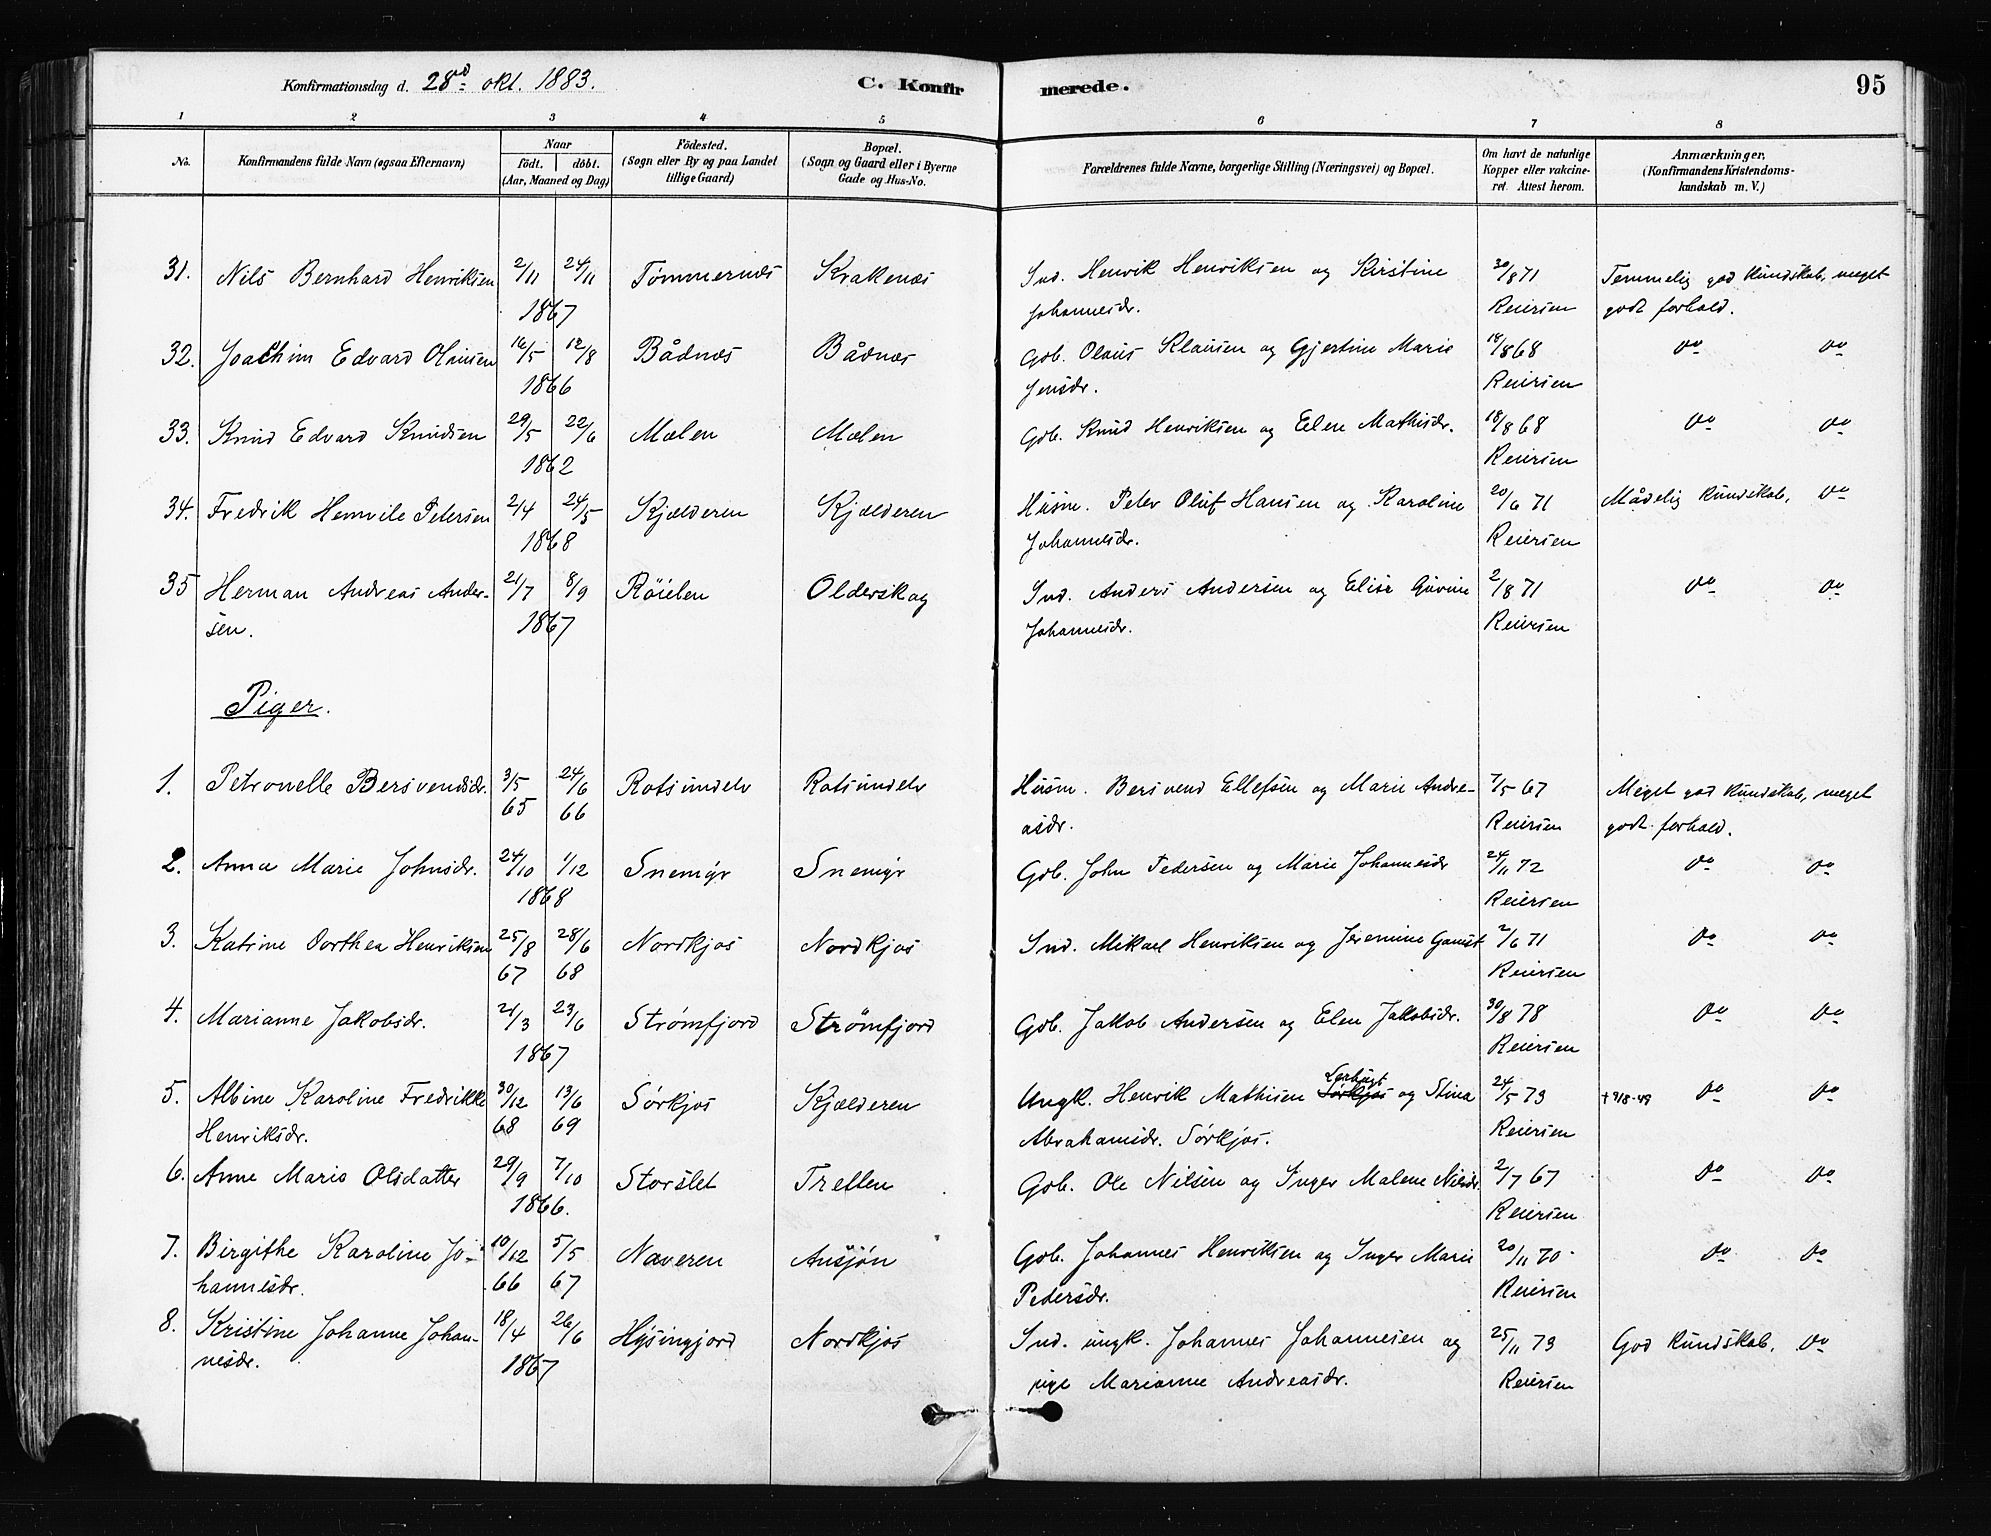 Konfirmationsdag d. 28de okt. 1883. C. Konfirmerede. 95
1 2 3 4 5 6 7 8
No. Konfirmandens fulde Navn (ogsaa Efternavn) Naar født. døbt. (Aar, Maaned og Dag) Födested. (Sogn eller By og paa Landet tillige Gaard) Bopæl. (Sogn og Gaard eller i Byerne Gade og Hus-No. Forældrenes fulde Navne, borgerlige Stilling (Næringsvei) og Bopæl. Om havt de naturlige Kopper eller vakcineret. Attest herom. Anmærkninger. (Konfirmandens Kristendomskundskab m. V.)
31. Nils Bernhard Henriksen 2/11 24/11 Tømmernæs Krakenæs Ind. Henrik Henriksen og Kirstine 30/8 71 Temmelig god kundskab, meget
1867 Johannesdr. Reiersen godt forhold.
32. Joachim Edvard Olausen 16/5 12/8 Bådnæs Bådnæs Gdb. Olaus Klausen og Gjertine Marie 18/8 68 do do
1866 Jensdr. Reiersen
33. Knud Edvard Knudsen 29/5 22/6 Mælen Mælen Gdb. Knud Henriksen og Elen Mathisdr. 18/8 68 do do
1862 Reiersen
34. Fredrik Petersen 2/4 24/5 Kjælderen Kjælderen Husm. Peter Oluf Hansen og Karoline 20/6 71 Mådelig kundskab, do
1868 Johannesdr. Reiersen
35 Herman Andreas Ander- 21/7 8/9 Røielen Olderskog Ind. Anders Andersen og Elise Johannesdr. 2/8 71 do do
sen. 1867 Reiersen
Piger.
1. Petronelle Bersvendsdr. 3/5 24/6 Rotsundelv Rotsundelv Husm. Bersvend Ellefsen og Marie Andre- 7/5 67 Meget god kundskab, meget
65 66 asdr. Reiersen godt forhold.
2. Anna Marie Johnsdr. 24/10 1/12 Snemyr Snemyr Gdb. John Pedersen og Marie Johannesdr 24/11 72 do do
1868 Reiersen
3. Katrine Dorthea Henriksen 25/8 28/6 Nordkjos Nordkjos Ind. Mikael Henriksen og Jeremine Gamst 2/6 71 do do
67 68 Reiersen
4. Marianne Jakobsdr. 21/3 23/6 Strømfjord Strømfjord Gdb. Jakob Andersen og Elen Jakobsdr. 30/8 78 do do
1867 Reiersen
Lerbugt
5. Albine Karoline Fredrikke 30/12 13/6 Sørkjos Kjælderen Ungk. Henrik Mathisen Sørkjos og Stina 24/5 73 do do
Henriksdr. 68 69 Abrahamsdr. Sørkjos. Reiersen
6. Anne Marie Olsdatter 29/9 7/10 Storslet Tretten Gdb. Ole Nilsen og Inger Malene Nilsdr. 2/7 67 do do
1866. Reiersen
7. Birgithe Karoline Jo- 10/12 5/5 Naveren Ansjøn Gdb. Johannes Henriksen og Inger Marie 20/11 70 do do
hannesdr. 66 67 Pedersdr. Reiersen
8. Kristine Johanne Johan- 18/4 26/6 Hysingjord Nordkjos Ind. ungk. Johannes Johannesen og 25/11 73 God kundskab, do
nesdr. 1867 pige Marianne Andreasdr. Reiersen